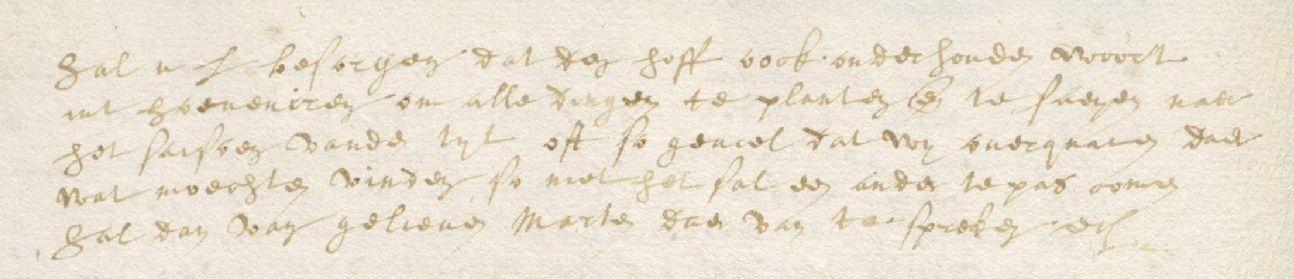 Sal u L besorgen dat den hoff oock onderhouden woort
int hovenieren om alle dingen te planten en te saeyen naer
het saisoen vande tyt oft so geviel dat wy overquamen daer
wat moechten vinden so niet het sal een ander te pas comen
Sal dan van gelieven Marten daer van te spreken